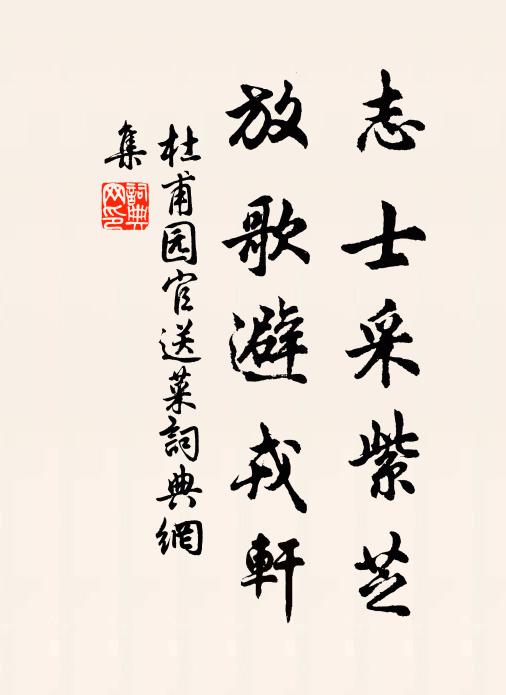 志士采紫芝
放歌避戎軒
杜甫园官送菜詞典網
集
詞典
网印